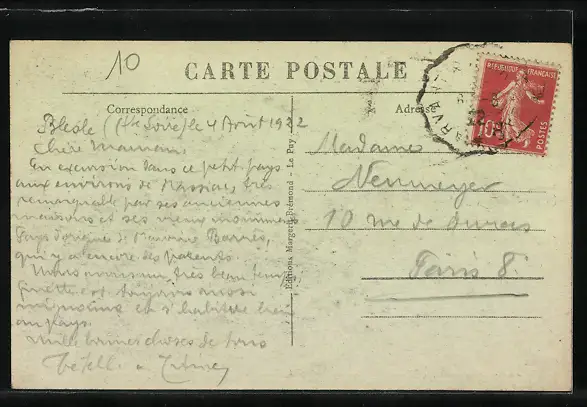 10
CARTE POSTALE
Correspondance
Adresse
RÉPUBLIQUE FRANÇAISE
10c
POSTES
Blesle (Hte Loire) le 4 Août 1922
Chère Maman,
En excursion dans ce petit pays
aux environs de Massiac, très
remarquable par ses anciennes
maisons et ses vieux monuments
Pays d'origine de Maurice Barrès,
qui y a encore des parents.
Nous avons un très beau temps,
est toujours aussi
mignonne et s'habitue bien
au pays.
Mille bonnes choses de tous
Éditions Margerit-Brémond - Le Puy
Madame
Neumeyer
10 rue de
Paris 8e